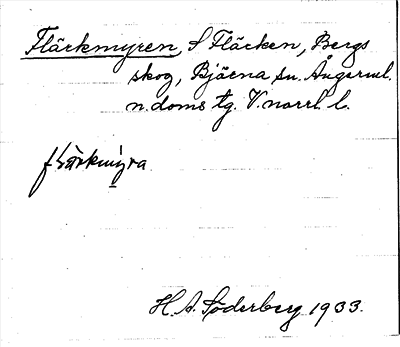 Flärkmyren, S Fläcken, Bergs
skog, Bjärna sn. Ångerml.
n. doms tg. V. norrl. l.
flärkmyra
H. A. Söderberg 1933.